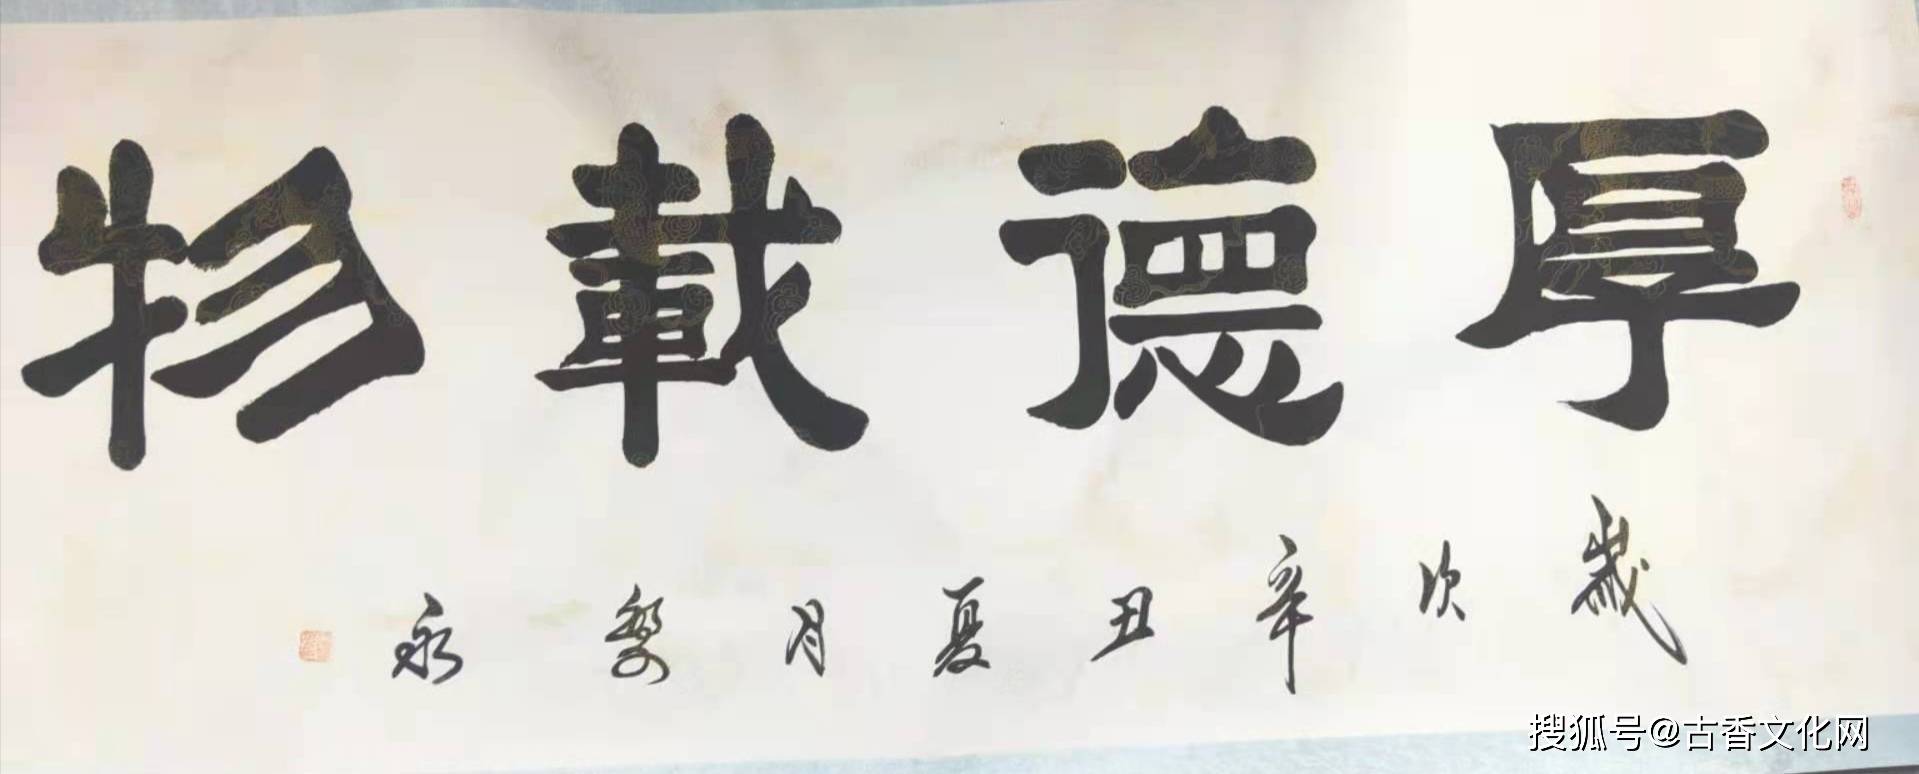 厚德載物
歲次辛丑夏月黎永
搜狐号@古香文化网